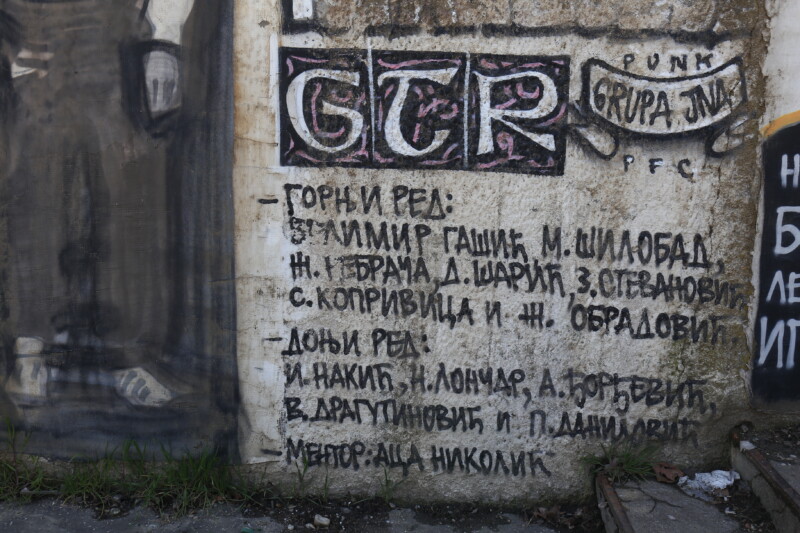 GTR
PUNK
GRUPA JNA
PFC
- ГОРЊИ РЕД:
ГАШИЋ М. ШИЛОБАД,
Ж. РЕБРАЧА, Д. ШАРИЋ, З. СТЕВАНОВИЋ
С. КОПРИВИЦА И Ж. ОБРАДОВИЋ.
- ДОЊИ РЕД:
И. НАКИЋ, Н. ЛОНЧАР, А. ЂОРЂЕВИЋ,
В. ДРАГУТИНОВИЋ И П. ДАНИЛОВИЋ
- МЕНТОР: АЦА НИКОЛИЋ